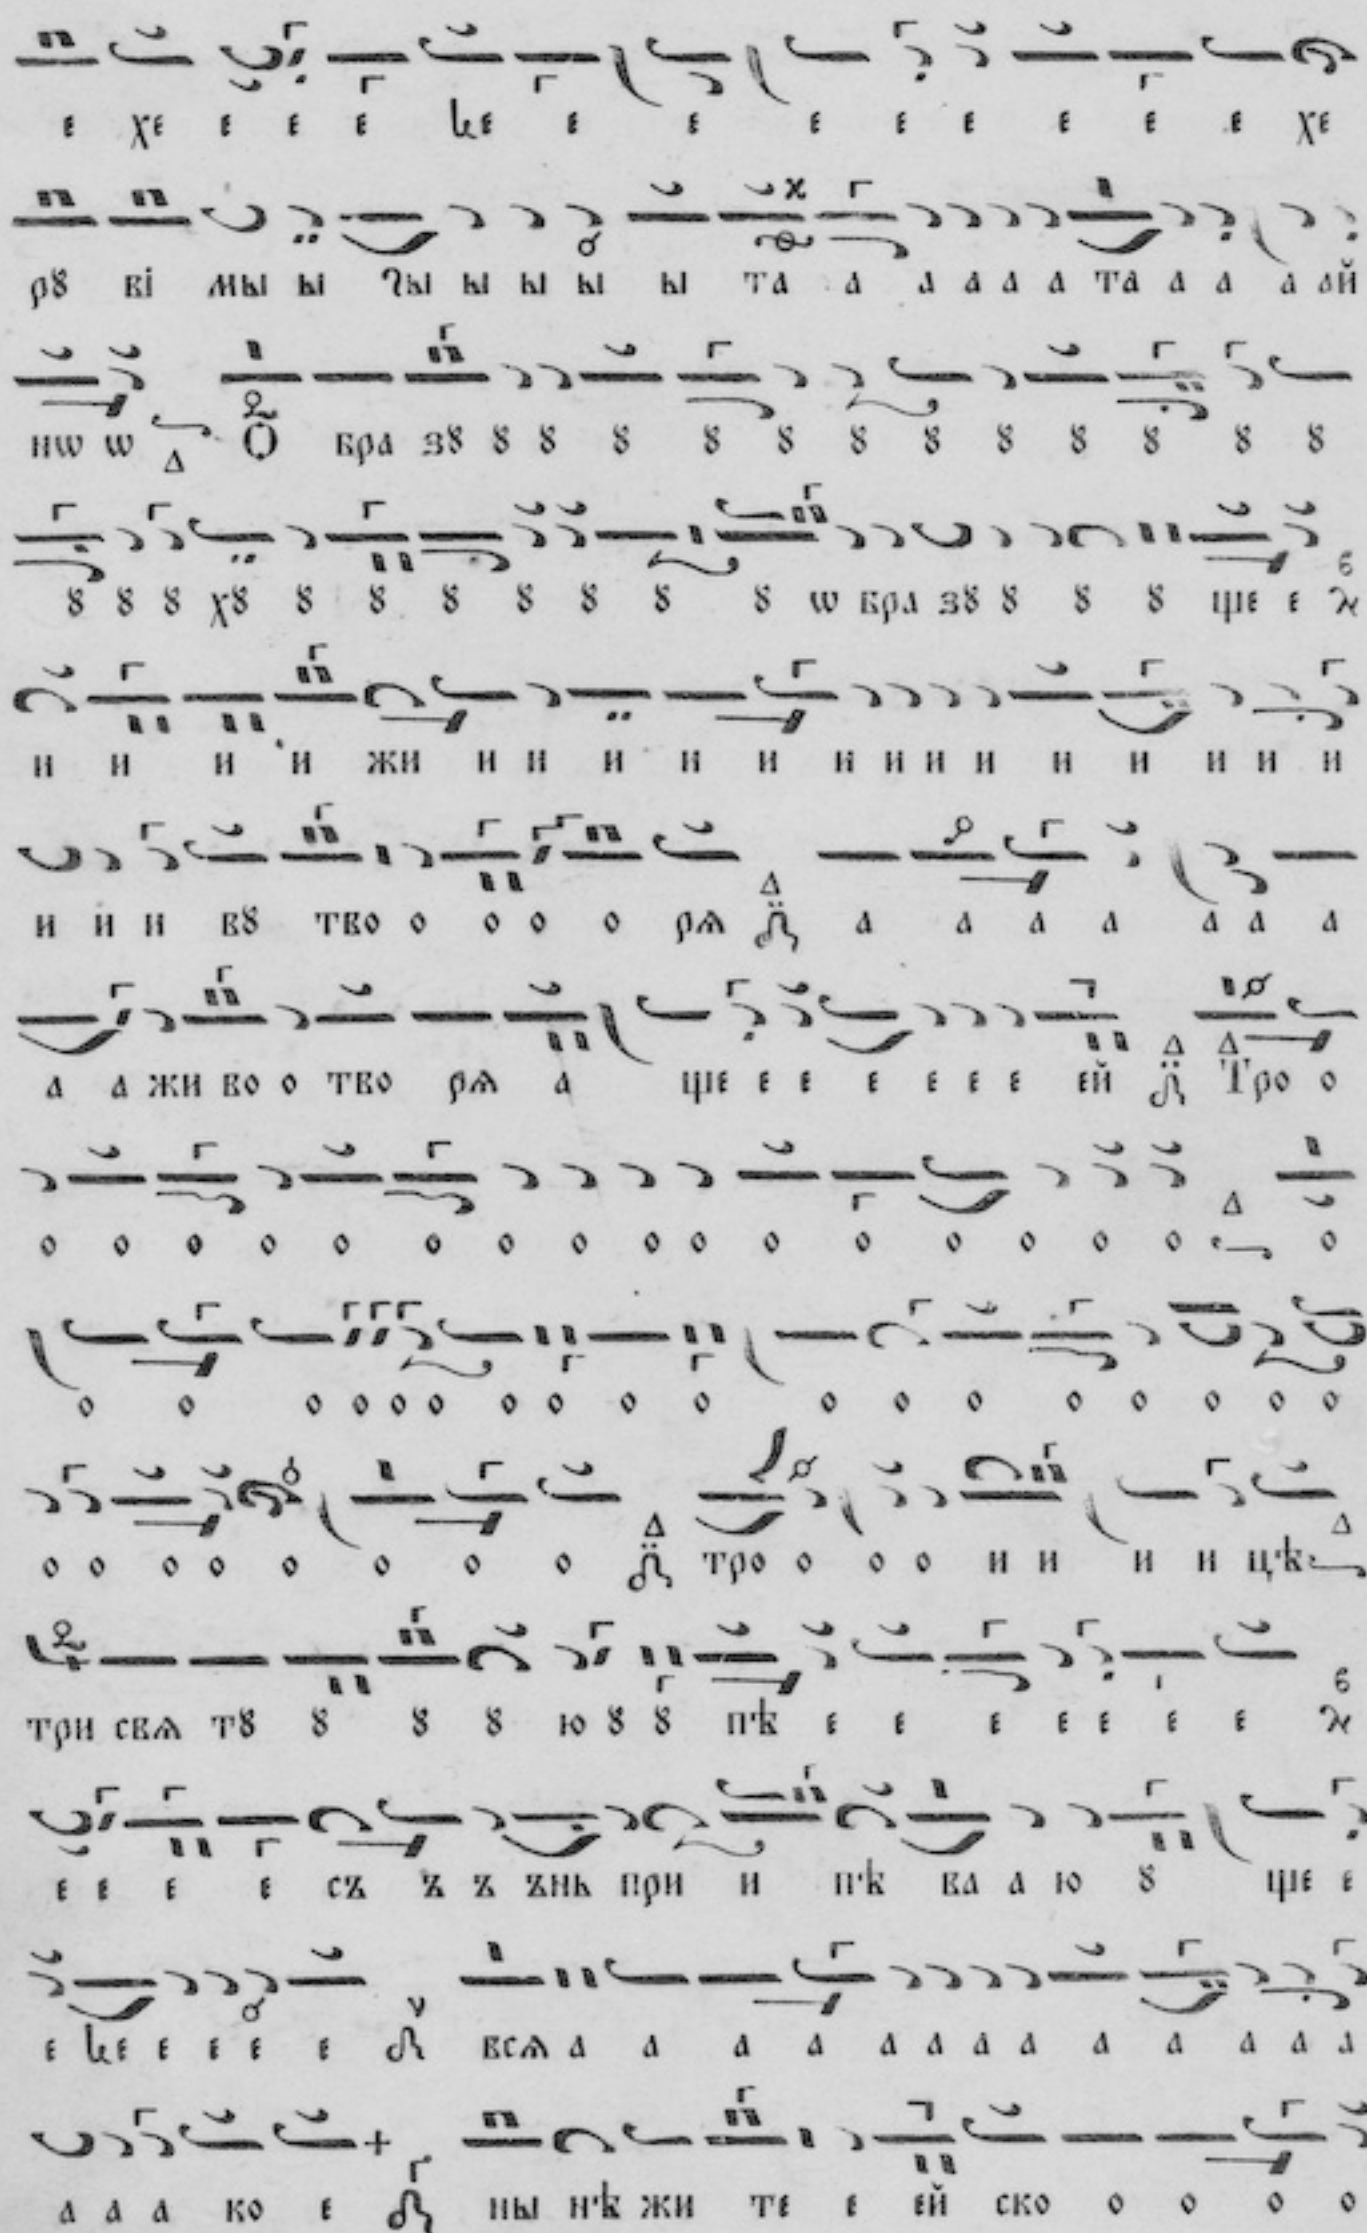 е хе е е е ке е е е е е е е е хе
рꙋ ві мы ы гы ы ы ы ы та а а а а а та а а а ай
нѡ ѡ О бра зꙋ ꙋ ꙋ ꙋ ꙋ ꙋ ꙋ ꙋ ꙋ ꙋ ꙋ ꙋ ꙋ
ꙋ ꙋ ꙋ хꙋ ꙋ ꙋ ꙋ ꙋ ꙋ ꙋ ꙋ ѡ бра зꙋ ꙋ ꙋ ꙋ ще е
и и и и жи и и и и и и и и и и и и и и
и и и ву тво о о о о рѧ а а а а а а а
а а жи во о тво рѧ а ще е е е е е е ей Тро о
о о о о о о о о о о о о о о о о о
о о о о о о о о о о о о о о о о о о
о о о о о о о о тро о о о и и и и цѣ
три свѧ тꙋ ꙋ ꙋ ꙋ ю ꙋ ꙋ пѣ е е е е е е е
е е е е съ ъ ъ ънь при и пѣ ва а ю ꙋ ще е
е ке е е е е всѧ а а а а а а а а а а а а а
а а а ко е ны нѣ жи те е ей ско о о о о